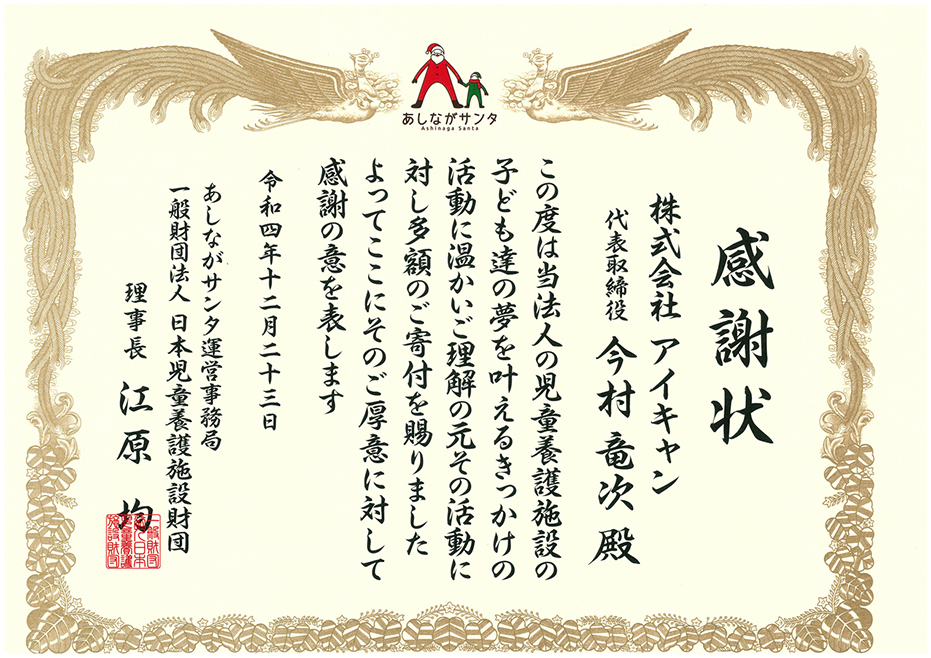 あしながサンタ
Ashinaga Santa
感謝状
株式会社 アイキャン
代表取締役 今村 竜次 殿
この度は当法人の児童養護施設の
子ども達の夢を叶えるきっかけの
活動に温かいご理解の元その活動に
対し多額のご寄付を賜りました
よってここにそのご厚意に対して
感謝の意を表します
令和四年十二月二十三日
あしながサンタ運営事務局
一般財団法人 日本児童養護施設財団
理事長 江原 均